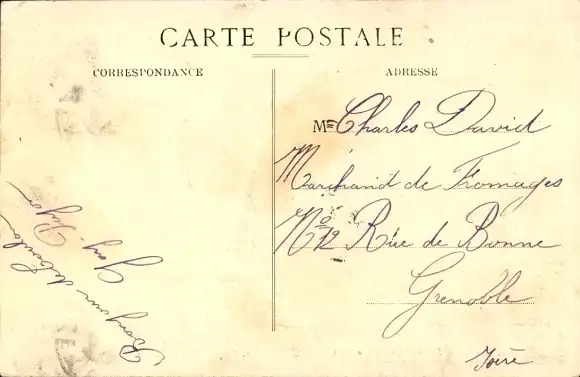 CARTE POSTALE
CORRESPONDANCE
ADRESSE
M Charles David
Marchand de Fromages
No 12 Rue de Bonne
Grenoble
Isère
Bonjour